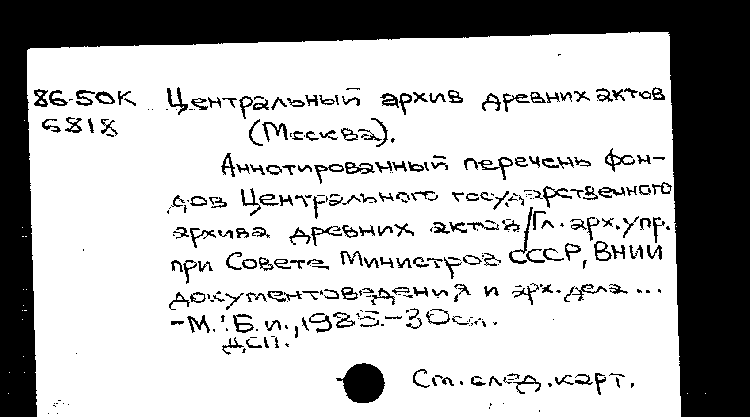 86-50К Центральный архив древних актов
6818 (Москва).
Аннотированный перечень фон-
дов Центрального государственного
архива древних актов/Гл. арх. упр.
при Совете Министров СССР, ВНИИ
документоведения и арх. дела ...
-М.: Б.и., 1985.-30сл.
ДСП.
Ст. след. карт.